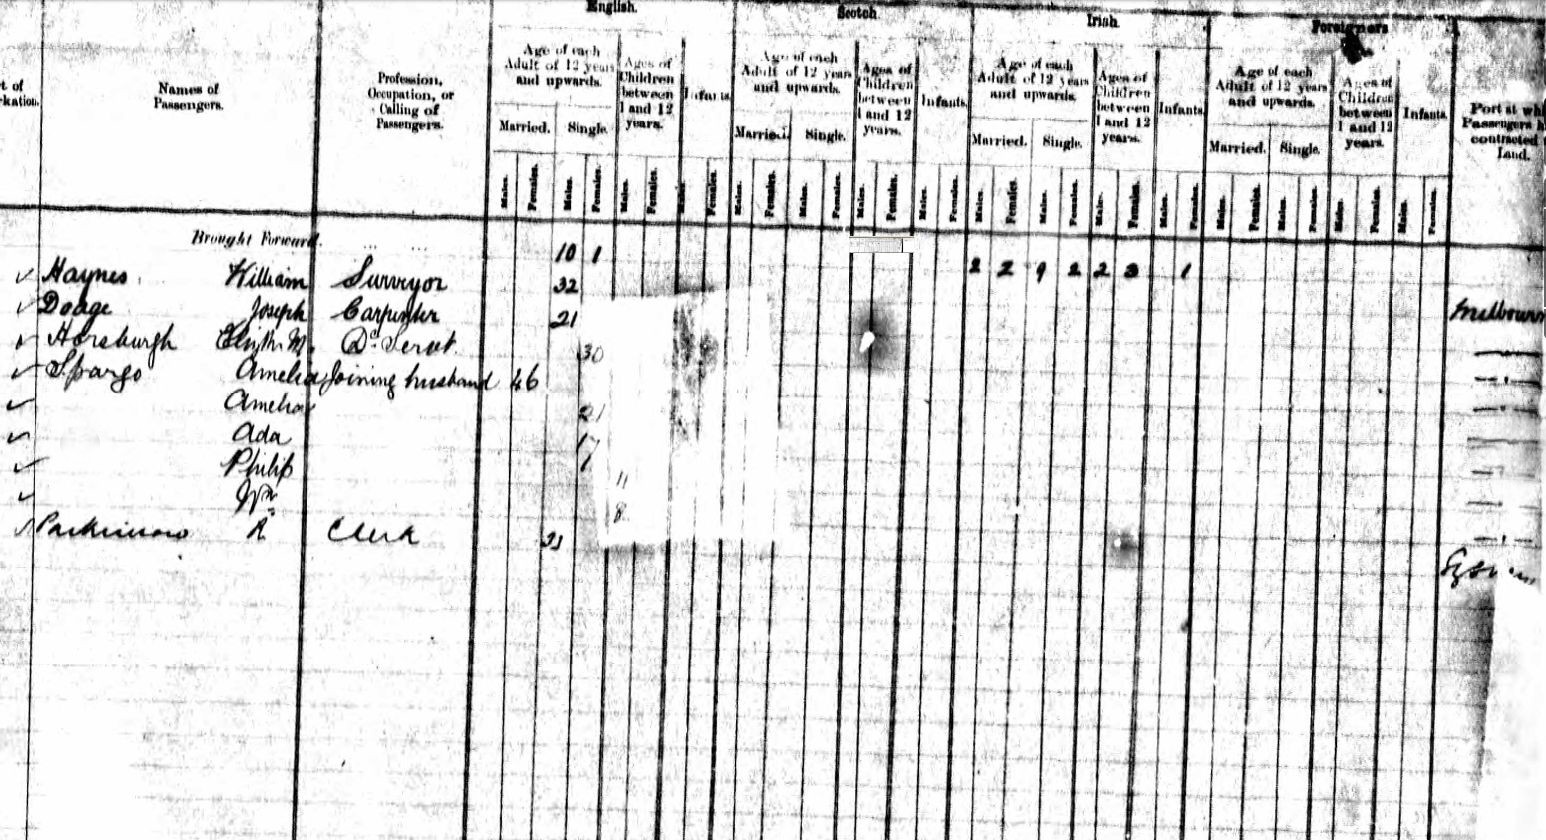 English. Scotch Irish. Foreigners
t of kation. Names of Passengers. Profession, Occupation, or Calling of Passengers. Age of each Adult of 12 years and upwards. Ages of Children between 1 and 12 years. Infants. Age of each Adult of 12 years and upwards. Ages of Children between 1 and 12 years. Infants. Age of each Adult of 12 years and upwards. Ages of Children between 1 and 12 years. Infants. Age of each Adult of 12 years and upwards. Ages of Children between 1 and 12 years. Infants. Port at whi Passengers h contracted Land.
Married. Single. Married. Single. Married. Single. Married. Single.
Males. Females. Males. Females. Males. Females. Males. Females. Males. Females. Males. Females. Males. Females. Males. Females. Males. Females. Males. Females. Males. Females. Males. Females. Males. Females. Males. Females. Males. Females. Males. Females.
Brought Forward. ... ... 10 1 2 2 9 2 2 3 1
✓ Haynes William Surveyor 32
✓ Dodge Joseph Carpenter 21 Melbourn
✓ Horsburgh Elizth. M. Do. Servt. 30
✓ Spargo Amelia Joining husband 46
✓ Amelia 21
✓ Ada 17
✓ Philip 11
✓ Wm. 8
✓ Parkinson R Clerk